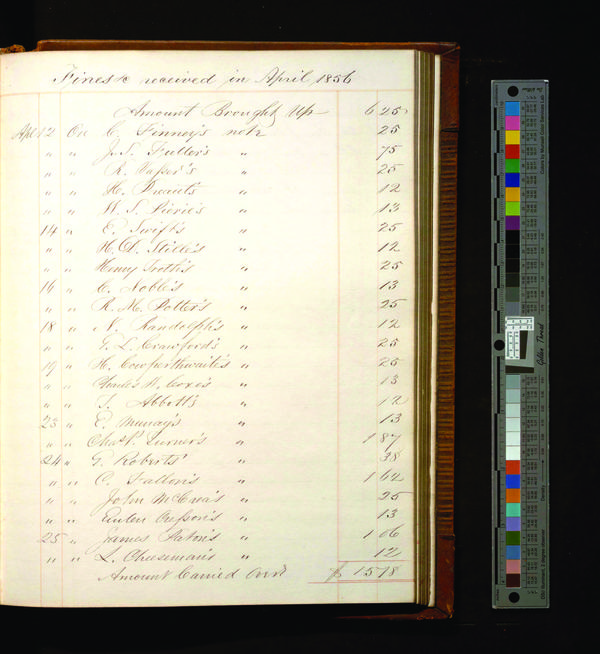 Fines &c received in April 1856
Amount Brought Up 6 25
Apl 12 On C. Finney's note 25
" " J. S. Fuller's " 75
" " R. Vasser's " 25
" " H. " 12
" " W. S. Pierie's " 13
14 " E. Swift's " 25
" " H. Stille's " 12
" " Henry Troth's " 25
16 " C. Noble's " 13
" " R. M. Potter's " 25
18 " N. Randolph's " 12
" " G. L. Crawford's " 25
19 " H. Cowperthwaite's " 25
" " Charles Coxe's " 13
" " Abbott's " 12
23 " E. Murray's " 13
" " Chas Turner's " 1 87
24 " G. Roberts' " 38
" " C. Fallon's " 1 62
" " John McCrea's " 25
" " " 13
25 " James Paton's " 1 06
" " L. Cheeseman's " 12
Amount Carried Over $ 15 78
Golden Thread